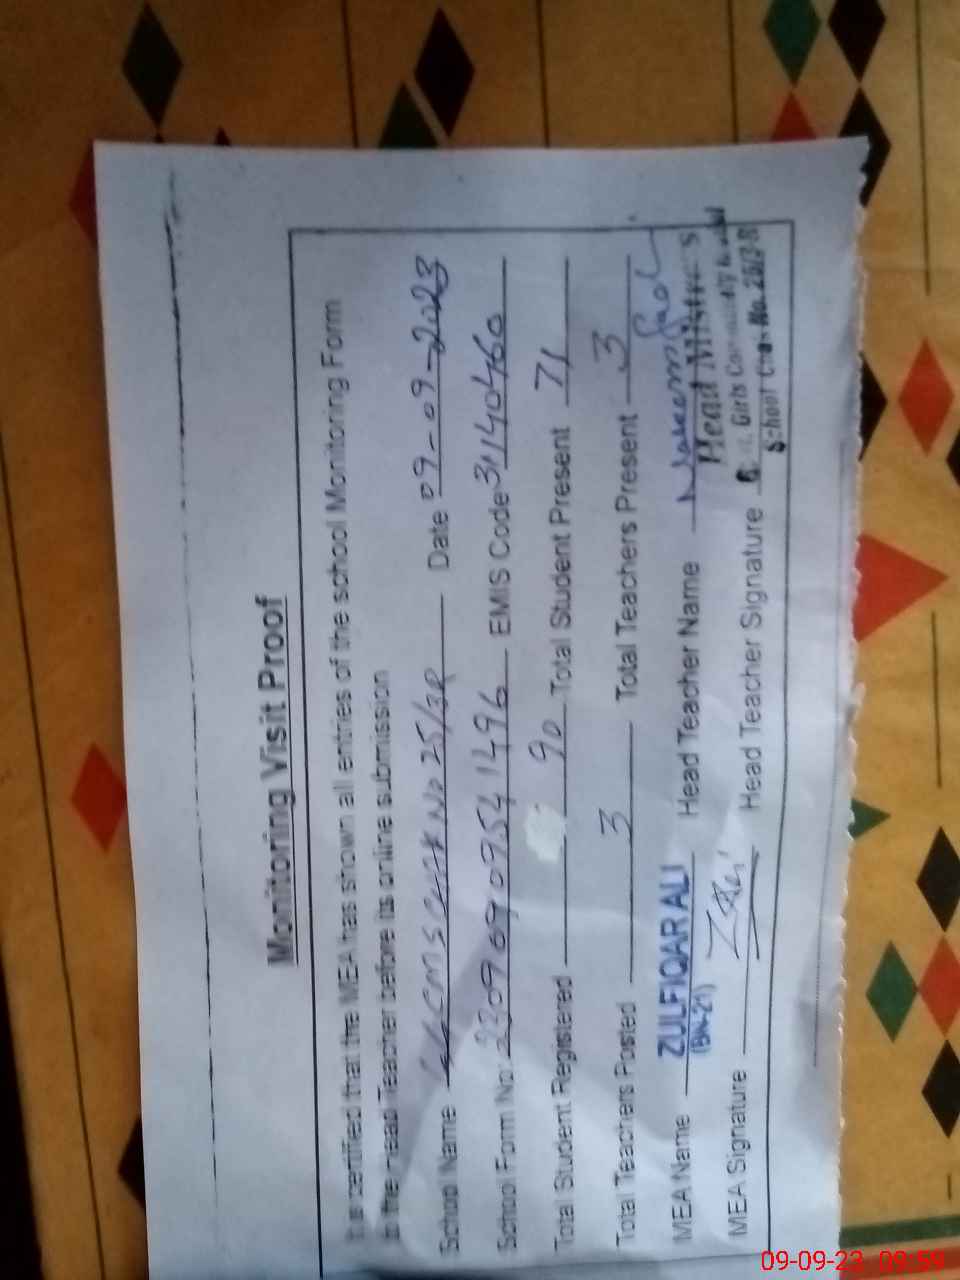 Monitoring Visit Proof
It is certified that the MEA has shown all entries of the school Monitoring Form
to the Head Teacher before its online submission
School Name GGCMS CHAK NO 25/3R Date 09-09-2023
School Form No: EMIS Code 31140460
Total Student Registered 90 Total Student Present 71
Total Teachers Posted 3 Total Teachers Present 3
MEA Name ZULFIQAR ALI Head Teacher Name Naseem
(BN-21) Head Mistress
MEA Signature Head Teacher Signature Girls Community Model
School Chak No. 25/3-R
09-09-23 09:59